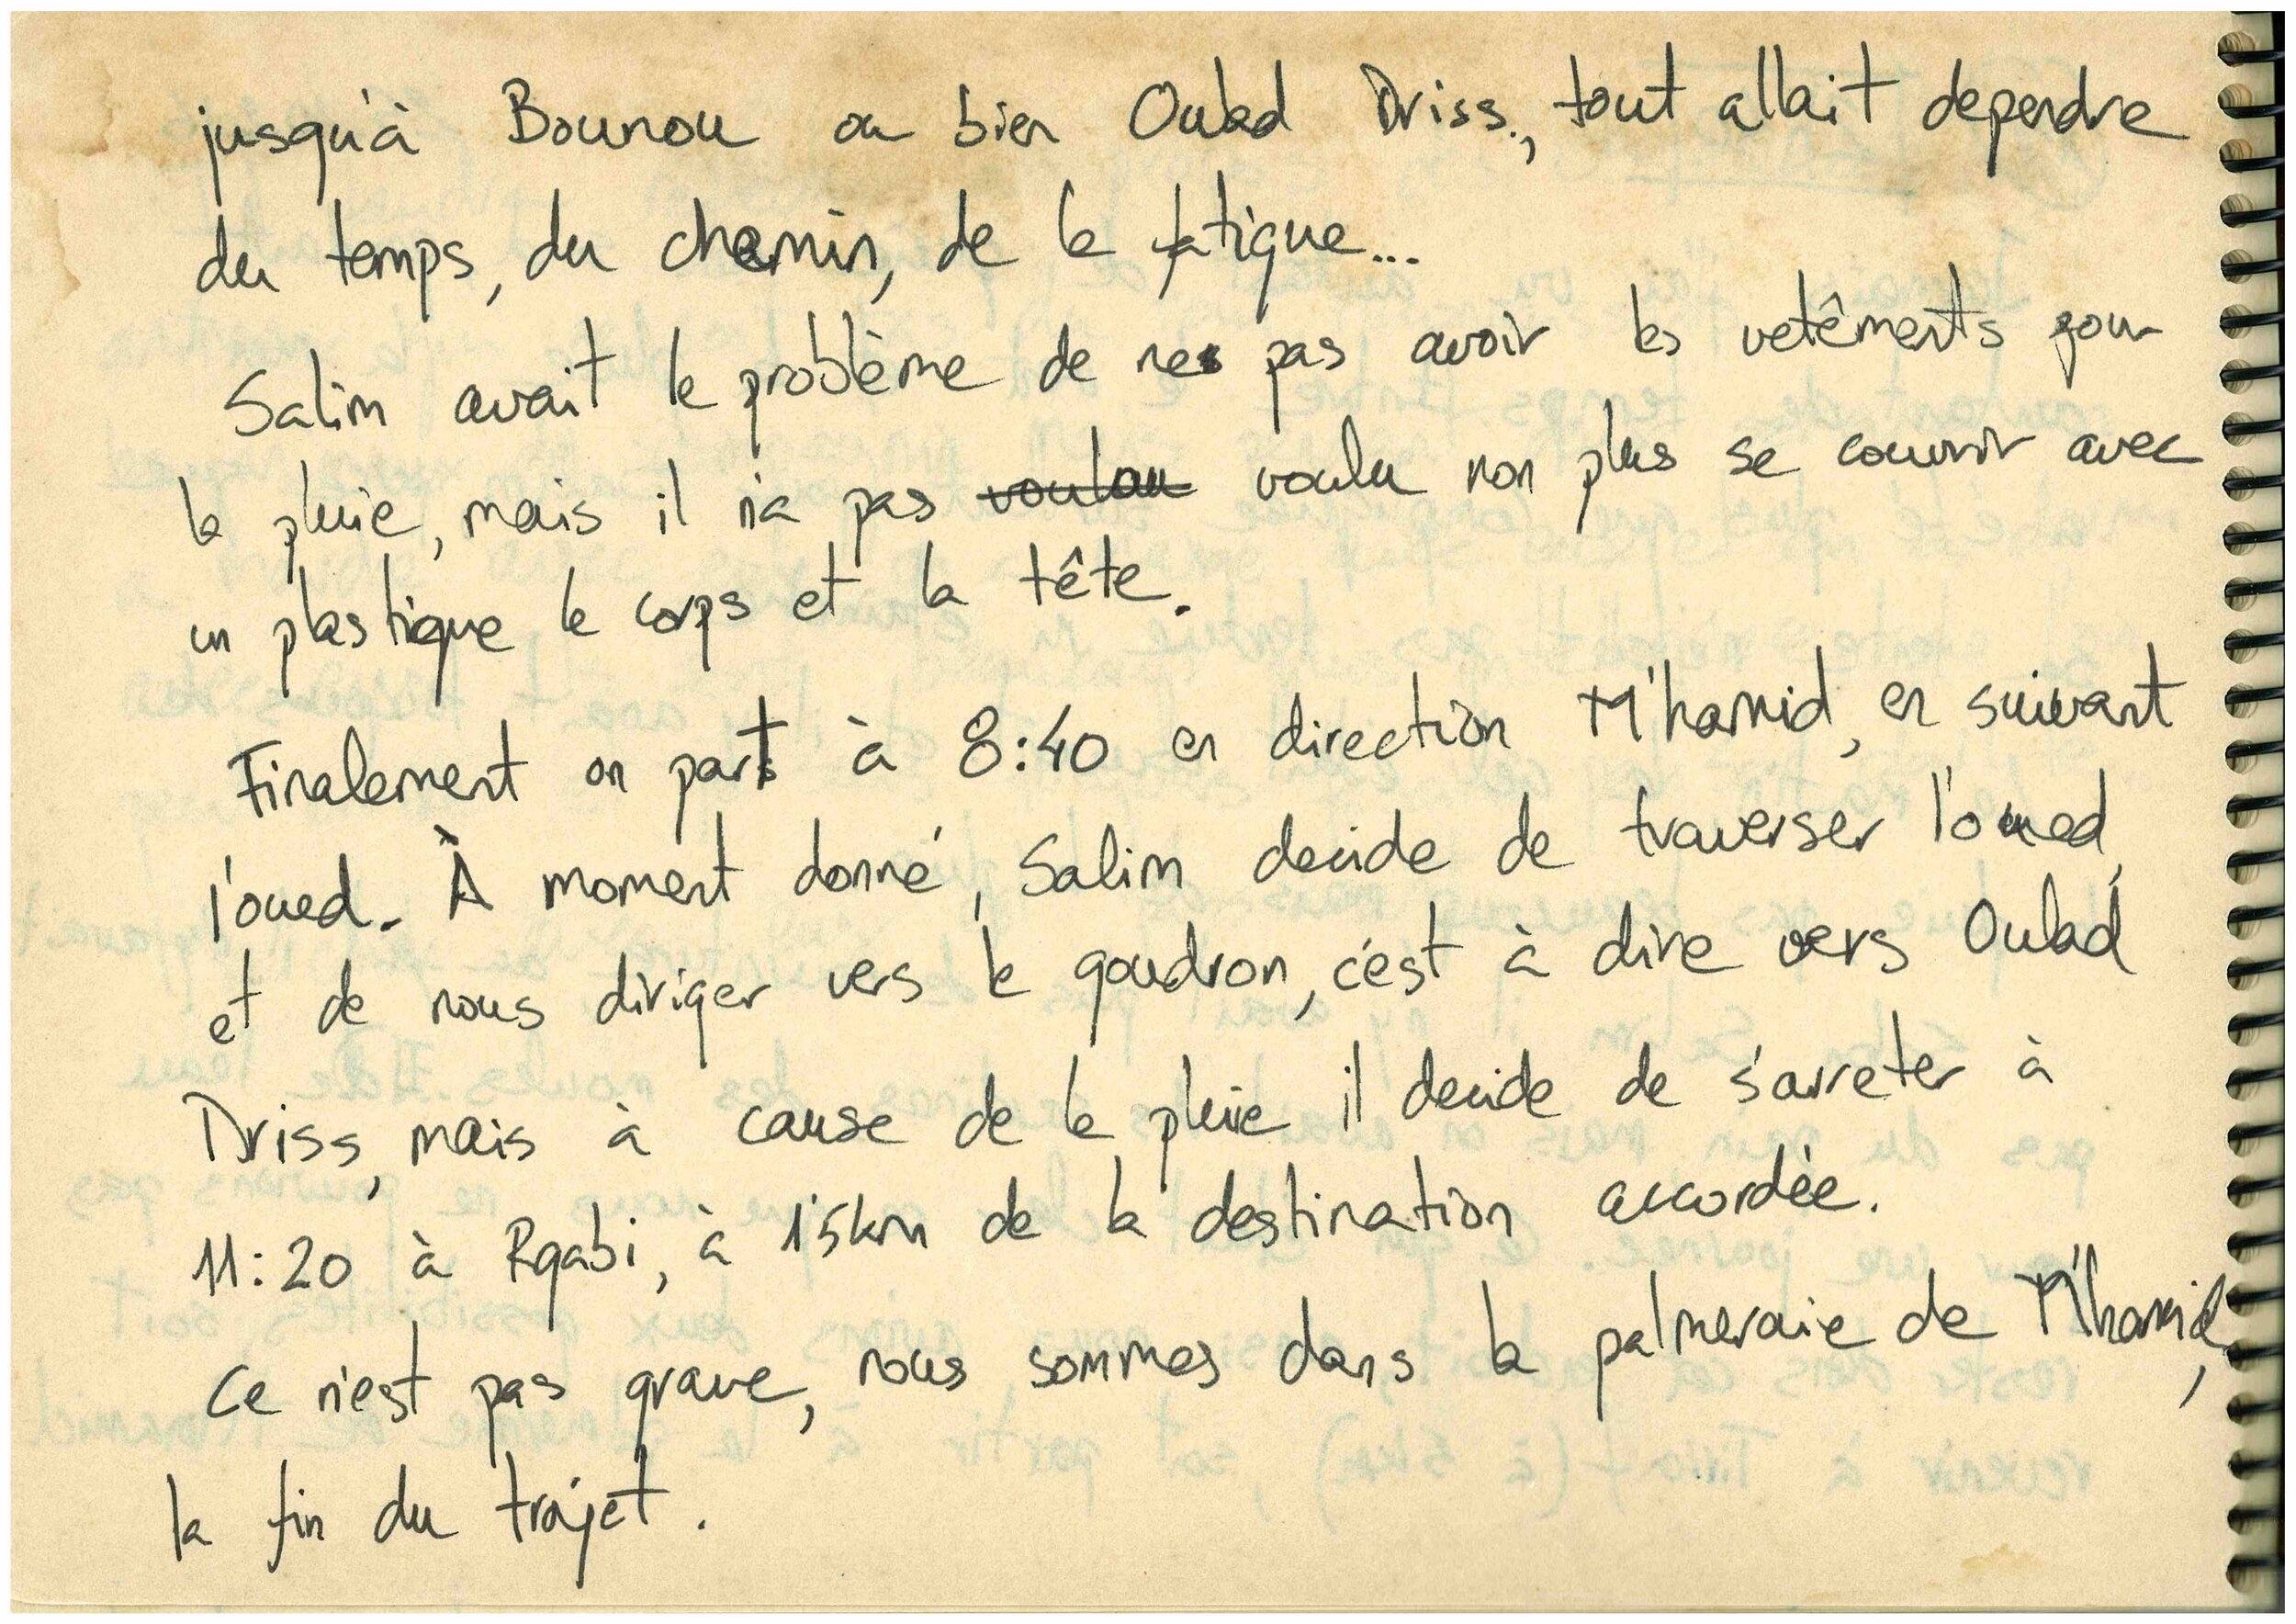 jusqu'à Bounou ou bien Oulad Driss., tout allait dependre
du temps, du chemin, de la fatigue...
Salim avait le problème de ne pas avoir les vetêments pour
la pluie, mais il n'a pas voulou voulu non plus se couvrir avec
un plastique le corps et la tête.
Finalement on part à 8:40 en direction M'hamid, en suivant
l'oued. À moment donné, Salim decide de traverser l'oued,
et de nous diriger vers le goudron, c'est à dire vers Oulad
Driss, mais à cause de la pluie il decide de s'arreter à
11:20 à Rgabi, à 15km de la destination accordée.
Ce n'est pas grave, nous sommes dans la palmeraie de M'hamid,
la fin du trajet.